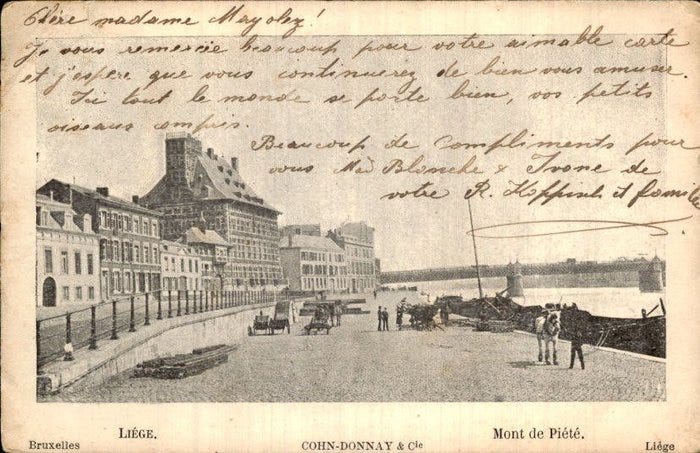 Chère madame Mayolez!
Je vous remercie beaucoup pour votre aimable carte
et j'espère que vous continuerez de bien vous amuser.
Ici tout le monde se porte bien, vos petits
oiseaux compris.
Beaucoup de compliments pour
vous Mad Blanche & Ivone de
votre R. & famille
LIÉGE.
Mont de Piété.
Bruxelles
COHN-DONNAY & Cie
Liége